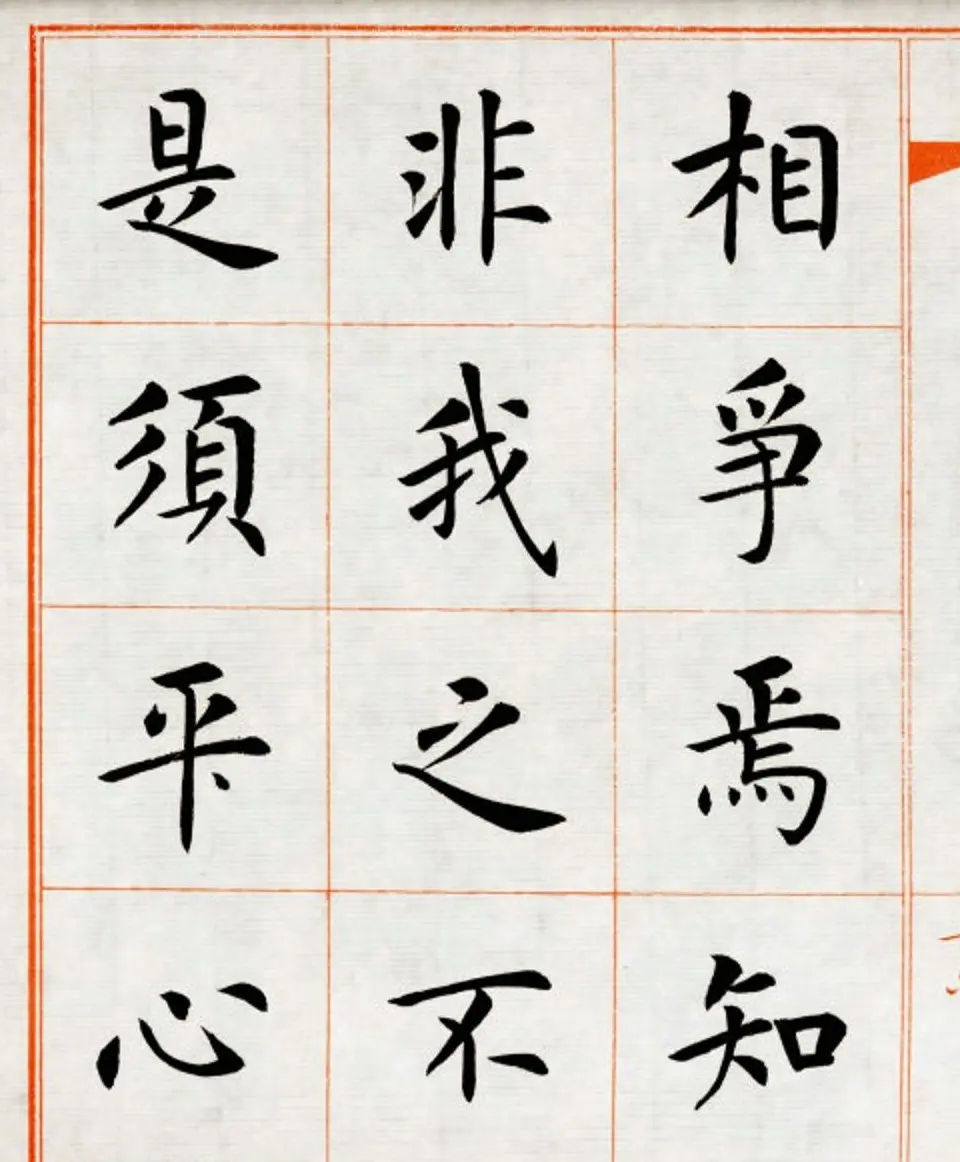 相爭焉知
非我之不
是須平心